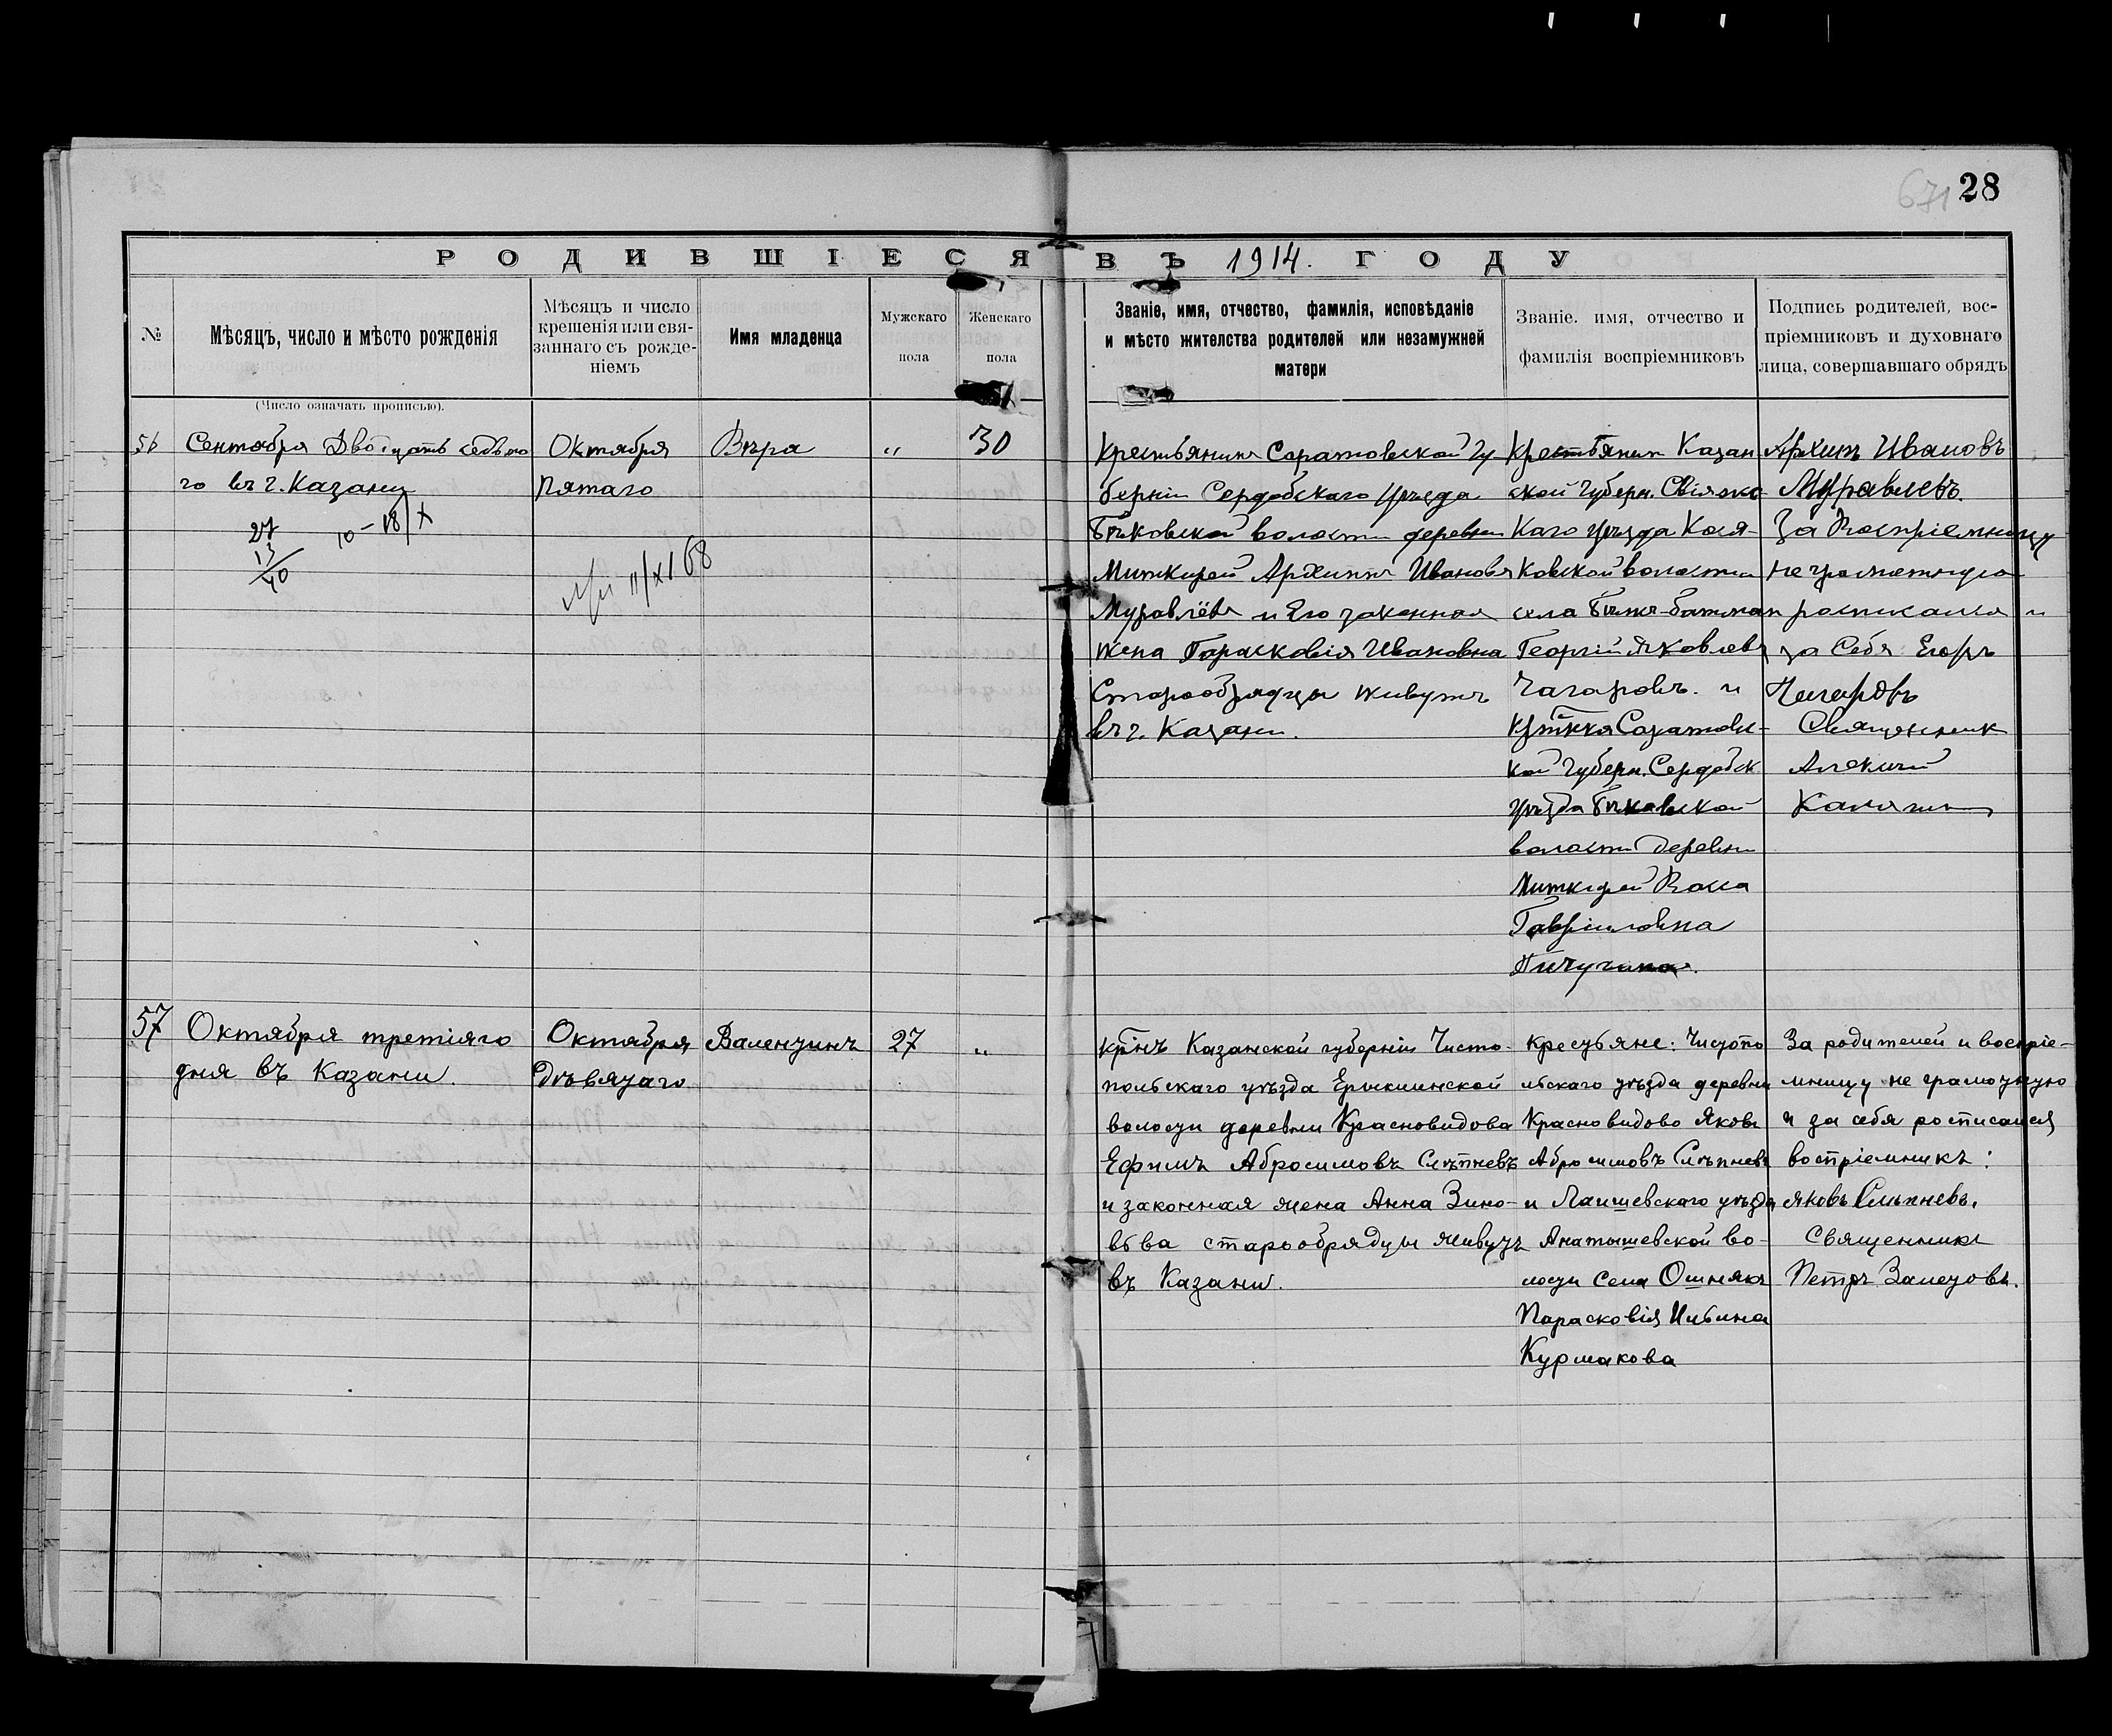 28
671
РОДИВШІЕСЯ ВЪ 1914. ГОДУ
№
Мѣсяцъ, число и мѣсто рожденія
(Число означать прописью).
Мѣсяцъ и число
крещенія или свя-
заннаго съ рожде-
ніемъ
Имя младенца
Мужскаго
пола
Женскаго
пола
Званіе, имя, отчество, фамилія, исповѣданіе
и мѣсто жителства родителей или незамужней
матери
Званіе. имя, отчество и
фамилія воспріемниковъ
Подпись родителей, вос-
пріемниковъ и духовнаго
лица, совершавшаго обрядъ
56
Сентября Двадцать седьмо
го въ г. Казани
27
13
40
10-18/X
Октября
Пятаго
11/XI 68
Вѣра
"
30
Крестьянинъ Саратовской Гу
берніи Сердобскаго Уѣзда
Бѣковской волости деревни
Миткирей Архиппъ Ивановъ
Муравлёвъ и Его законная
жена Парасковія Ивановна
Старообрядцы живутъ
въ г. Казани.
Крестьянин Казан
ской Губерн. Свіяжс
каго Уѣзда Кося-
ковской волости
села Бѣтк-батман
Георгій Яковлевъ
Чагаровъ. и
Саратовс-
кой Губерн. Сердобск
Уѣзда Бѣковской
волости деревни
Миткирей Васса
Гавріиловна
Пичугина.
Архипъ Ивановъ
Муравлевъ.
За Воспріемницу
неграмотную
росписался и
за Себя Егоръ
Чагаровъ
Священник
Алексий
Калягин
57
Октября третіяго
дня въ Казани.
Октября
Дѣвятаго
Валентинъ
27
"
крнъ Казанской губерніи Чисто-
польскаго уѣзда Ерыклинской
волости деревни Красновидова
Ефимъ Абросимовъ Слѣпневъ
и законная жена Анна Зино-
вьва старообрядцы живутъ
въ Казани.
крестьяне: Чистопо
льскаго уѣзда деревни
Красновидово Яковъ
Абросимовъ Слѣпневъ
и Лаишевскаго уѣзда
Анатышевской во-
лости села Ошнякъ
Парасковія Ильина
Курмакова
За родителей и воспріе-
мницу не грамотную
и за себя росписался
воспріемникъ:
Яковъ Слѣпневъ.
Священникъ
Петръ Залетовъ.